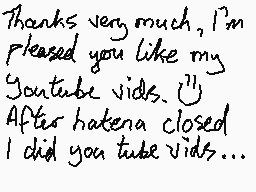 Thanks very much, I'm
pleased you like my
Youtube vids.
After hatena closed
I did you tube vids...